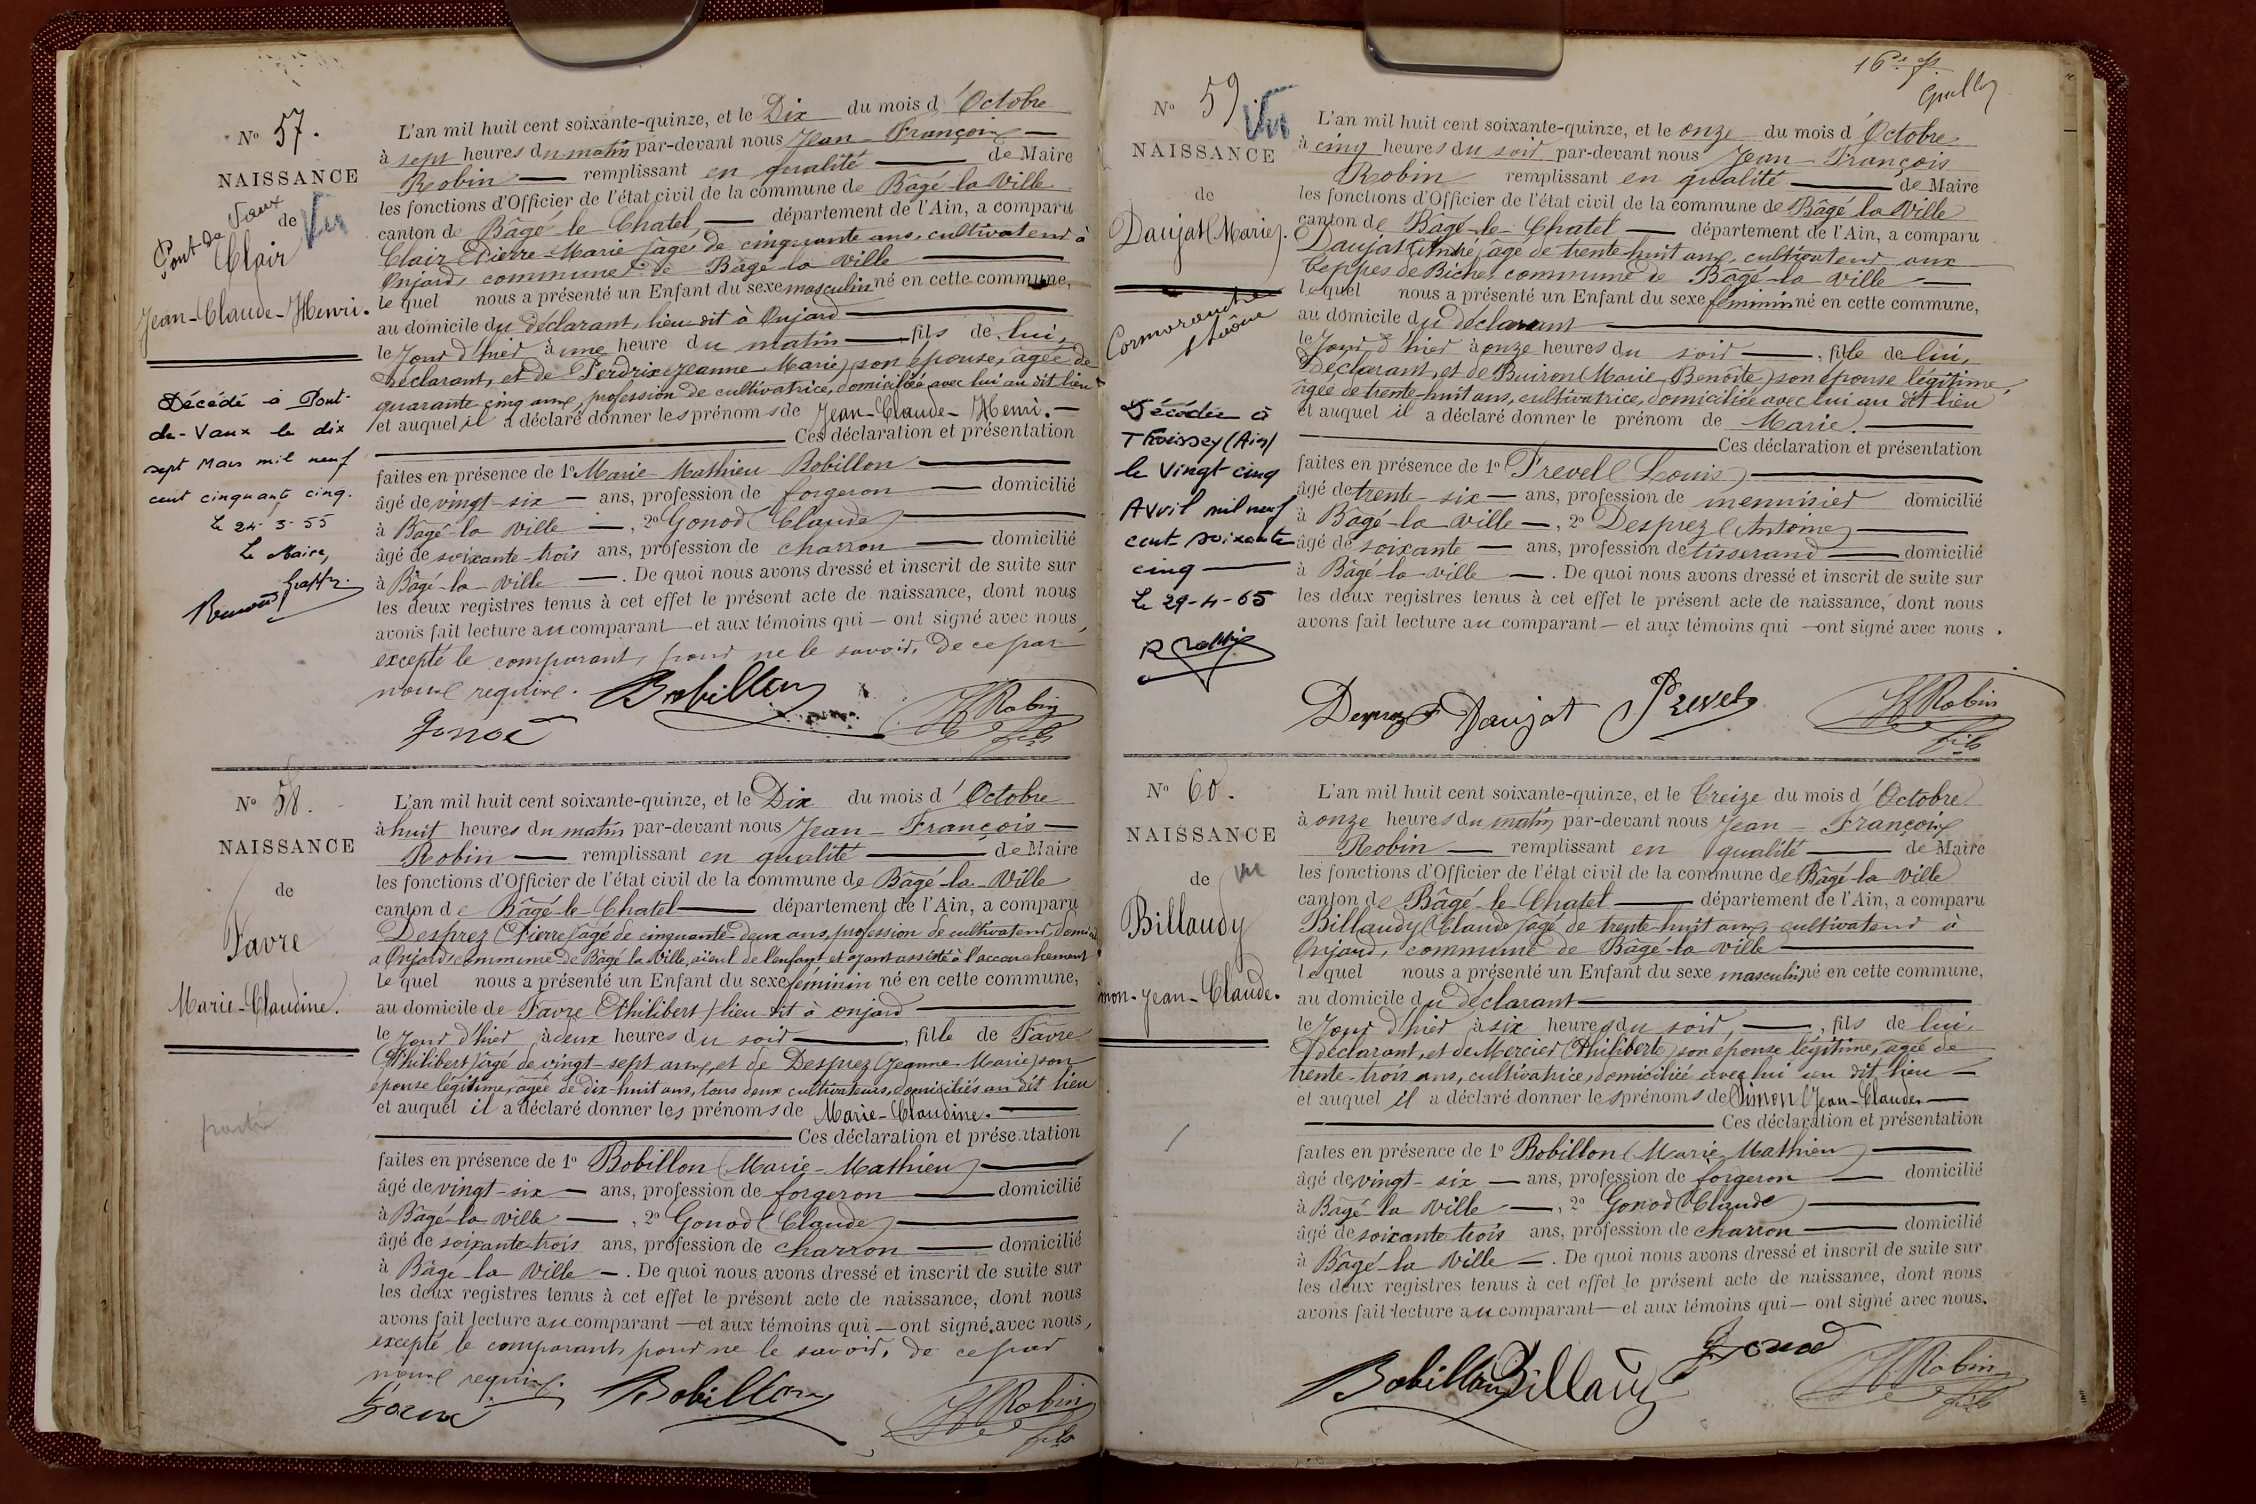 N° 57.
NAISSANCE
de
Vu
Pont de Vaux
Clair
Jean-Claude-Henri.
Décédé à Pont-
de-Vaux le dix
sept Mars mil neuf
cent cinquante cinq.
Le 24-3-55
Le Maire,
L'an mil huit cent soixante-quinze, et le Dix du mois d'Octobre
à sept heures du matin par-devant nous Jean-François
Robin remplissant en qualité de Maire
les fonctions d'Officier de l'état civil de la commune de Bâgé-la-Ville
canton de Bâgé le Chatel, département de l'Ain, a comparu
Clair (Pierre-Marie) âgé de cinquante ans, cultivateur à
Onjard, commune de Bâgé la Ville
le quel nous a présenté un Enfant du sexe masculin né en cette commune,
au domicile du déclarant, lieu dit à Onjard
le Jour d'hier à une heure du matin, fils de lui,
déclarant, et de Perdrix (Jeanne-Marie) son épouse, âgée de
quarante cinq ans, profession de cultivatrice, domiciliée avec lui au dit lieu
et auquel il a déclaré donner les prénoms de Jean-Claude-Henri.
Ces déclaration et présentation
faites en présence de 1° Marie Mathieu Bobillon
âgé de vingt-six ans, profession de forgeron domicilié
à Bâgé-la-Ville, 2° Gonod (Claude)
âgé de soixante-trois ans, profession de charron domicilié
à Bâgé-la-Ville. De quoi nous avons dressé et inscrit de suite sur
les deux registres tenus à cet effet le présent acte de naissance, dont nous
avons fait lecture au comparant et aux témoins qui ont signé avec nous,
excepté le comparant, pour ne le savoir, de ce par
nous requis.
Bobillon
Gonod
Robin
fils
N° 58.
NAISSANCE
de
Favre
Marie-Claudine.
L'an mil huit cent soixante-quinze, et le Dix du mois d'Octobre
à huit heures du matin par-devant nous Jean-François
Robin remplissant en qualité de Maire
les fonctions d'Officier de l'état civil de la commune de Bâgé-la-Ville
canton de Bâgé-le-Chatel département de l'Ain, a comparu
Desprez (Pierre) âgé de cinquante-deux ans, profession de cultivateur, domicilié
à Onjard commune de Bâgé la Ville, aïeul de l'enfant et ayant assisté à l'accouchement
le quel nous a présenté un Enfant du sexe féminin né en cette commune,
au domicile de Favre (Philibert) lieu dit à onjard
le Jour d'hier à deux heures du soir, fille de Favre
(Philibert) âgé de vingt-sept ans, et de Desprez (Jeanne-Marie) son
épouse légitime, âgée de dix-huit ans, tous deux cultivateurs, domiciliés au dit lieu
et auquel il a déclaré donner les prénoms de Marie-Claudine.
Ces déclaration et présentation
faites en présence de 1° Bobillon (Marie-Mathieu)
âgé de vingt-six ans, profession de forgeron domicilié
à Bâgé-la-Ville, 2° Gonod (Claude)
âgé de soixante-trois ans, profession de charron domicilié
à Bâgé-la-Ville. De quoi nous avons dressé et inscrit de suite sur
les deux registres tenus à cet effet le présent acte de naissance, dont nous
avons fait lecture au comparant et aux témoins qui ont signé avec nous,
excepté le comparant, pour ne le savoir, de ce par
nous requis.
Gonod
Bobillon
Robin
fils
N° 59.
Vu
NAISSANCE
de
Daujat (Marie).
Cormoranche
s/ Saône
Décédée à
Thoissey (Ain)
le Vingt cinq
Avril mil neuf
cent soixante
cinq
Le 29-4-65
L'an mil huit cent soixante-quinze, et le onze du mois d'Octobre
à cinq heures du soir par-devant nous Jean-François
Robin remplissant en qualité de Maire
les fonctions d'Officier de l'état civil de la commune de Bâgé la Ville
canton de Bâgé-le-Chatel département de l'Ain, a comparu
Daujat (André) âgé de trente-huit ans, cultivateur aux
Teppes de Biches commune de Bâgé-la-Ville
lequel nous a présenté un Enfant du sexe féminin né en cette commune,
au domicile du déclarant
le Jour d'hier à onze heures du soir, fille de lui,
Déclarant, et de Buiron (Marie-Benoîte) son épouse légitime
âgée de trente-huit ans, cultivatrice, domiciliée avec lui au dit lieu
et auquel il a déclaré donner le prénom de Marie.
Ces déclaration et présentation
faites en présence de 1° Prevel (Louis)
âgé de trente-six ans, profession de menuisier domicilié
à Bâgé-la-Ville, 2° Desprez (Antoine)
âgé de soixante ans, profession de tisserand domicilié
à Bâgé-la-Ville. De quoi nous avons dressé et inscrit de suite sur
les deux registres tenus à cet effet le présent acte de naissance, dont nous
avons fait lecture au comparant et aux témoins qui ont signé avec nous.
Desprez Daujat Prevel
Robin
fils
N° 60.
NAISSANCE
de
vu
Billaudy
imon-Jean-Claude.
L'an mil huit cent soixante-quinze, et le Treize du mois d'Octobre
à onze heures du matin par-devant nous Jean-François
Robin remplissant en qualité de Maire
les fonctions d'Officier de l'état civil de la commune de Bâgé la Ville
canton de Bâgé-le-Chatel département de l'Ain, a comparu
Billaudy (Claude) âgé de trente-huit ans, cultivateur à
Onjard, commune de Bâgé-la-Ville
lequel nous a présenté un Enfant du sexe masculin né en cette commune,
au domicile du déclarant
le Jour d'hier à six heures du soir, fils de lui,
déclarant, et de Mercier (Philiberte) son épouse légitime, âgée de
trente-trois ans, cultivatrice, domiciliée avec lui au dit lieu
et auquel il a déclaré donner les prénoms de Simon (Jean-Claude)
Ces déclaration et présentation
faites en présence de 1° Bobillon (Marie Mathieu)
âgé de vingt-six ans, profession de forgeron domicilié
à Bâgé la Ville, 2° Gonod (Claude)
âgé de soixante trois ans, profession de charron domicilié
à Bâgé-la-Ville. De quoi nous avons dressé et inscrit de suite sur
les deux registres tenus à cet effet le présent acte de naissance, dont nous
avons fait lecture au comparant et aux témoins qui ont signé avec nous.
Bobillon Billaudy Gonod
Robin
fils